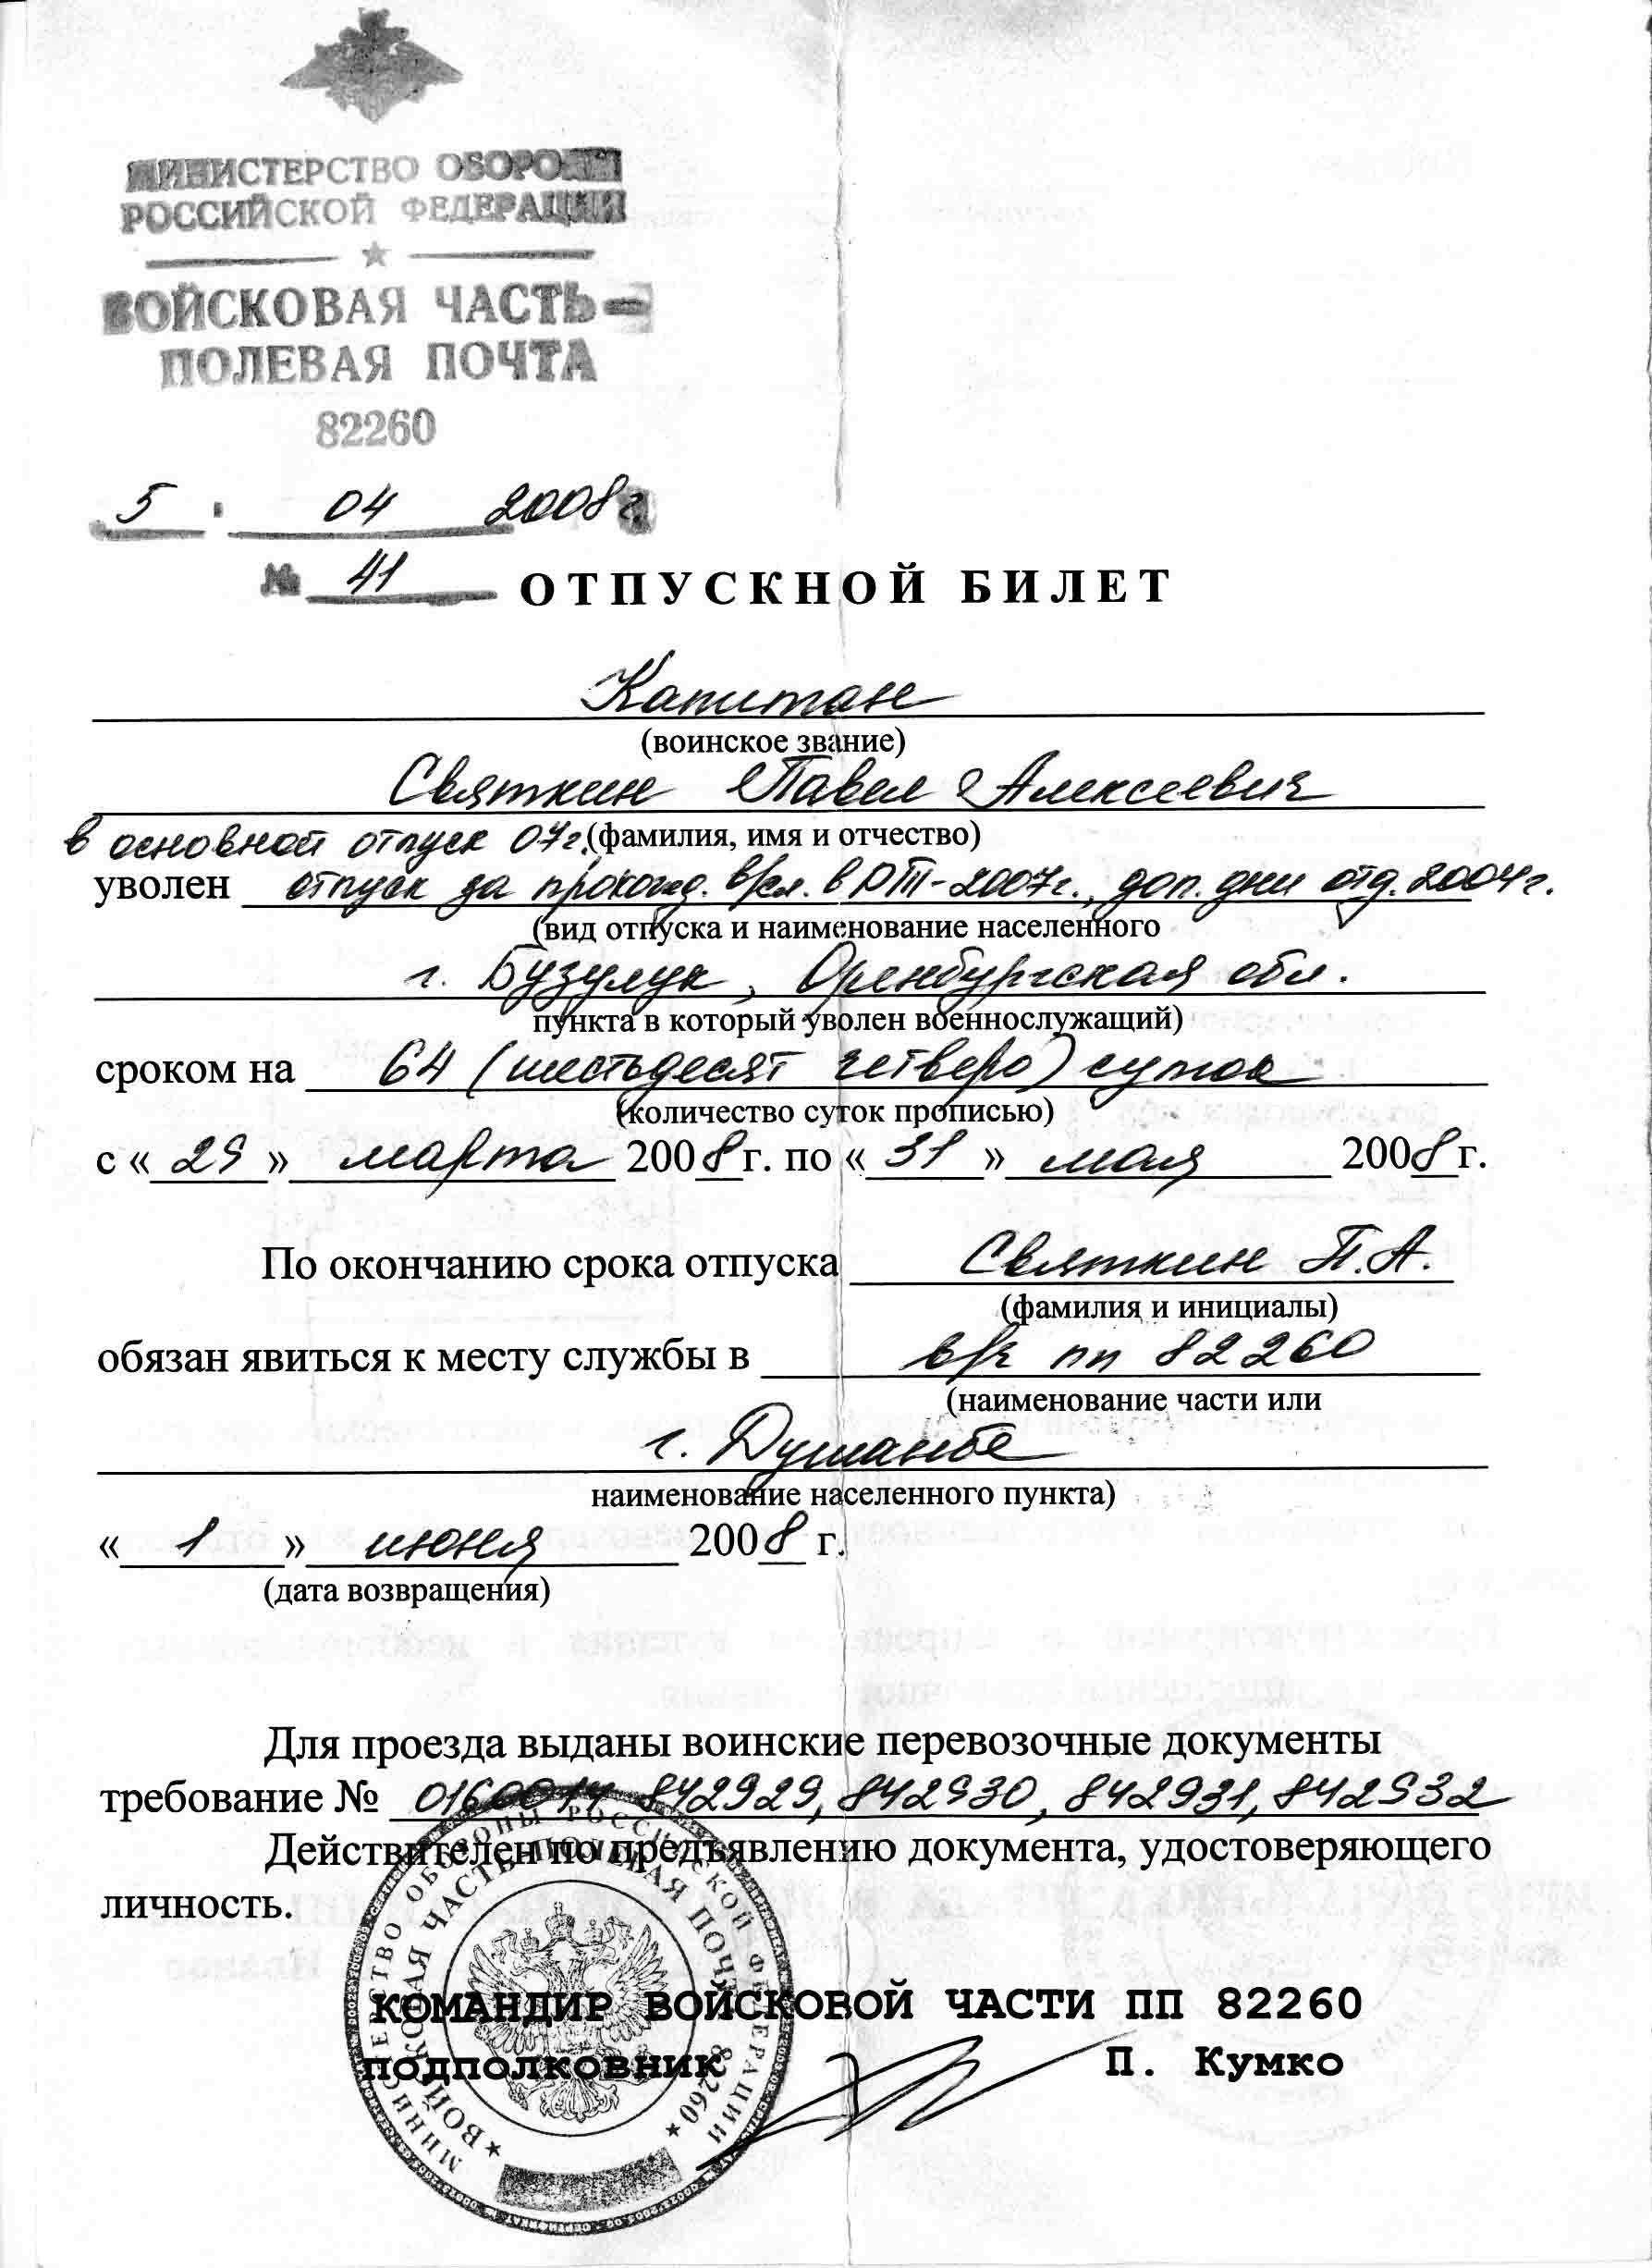 МИНИСТЕРСТВО ОБОРОНЫ
РОССИЙСКОЙ ФЕДЕРАЦИИ
ВОЙСКОВАЯ ЧАСТЬ-
ПОЛЕВАЯ ПОЧТА
82260
5 . 04 2008г.
№ 41 ОТПУСКНОЙ БИЛЕТ
Капитан
(воинское звание)
Святкин Павел Алексеевич
в основной отпуск 07г. (фамилия, имя и отчество)
уволен отпуск за прохожд. в/сл. в РТ-2007г., доп. дни отд. 2004г.
(вид отпуска и наименование населенного
г. Бузулук, Оренбургская обл.
пункта в который уволен военнослужащий)
сроком на 64 (шестьдесят четверо) суток
(количество суток прописью)
с « 29 » марта 2008г. по « 31 » мая 2008г.
По окончанию срока отпуска Святкин П.А.
(фамилия и инициалы)
обязан явиться к месту службы в в/ч пп 82260
(наименование части или
г. Душанбе
наименование населенного пункта)
« 1 » июня 2008 г.
(дата возвращения)
Для проезда выданы воинские перевозочные документы
требование № 842929, 842930, 842931, 842932
Действителен по предъявлению документа, удостоверяющего
личность.
КОМАНДИР ВОЙСКОВОЙ ЧАСТИ ПП 82260
подполковник П. Кумко
МИНИСТЕРСТВО ОБОРОНЫ РОССИЙСКОЙ ФЕДЕРАЦИИ
ВОЙСКОВАЯ ЧАСТЬ ПОЛЕВАЯ ПОЧТА 82260